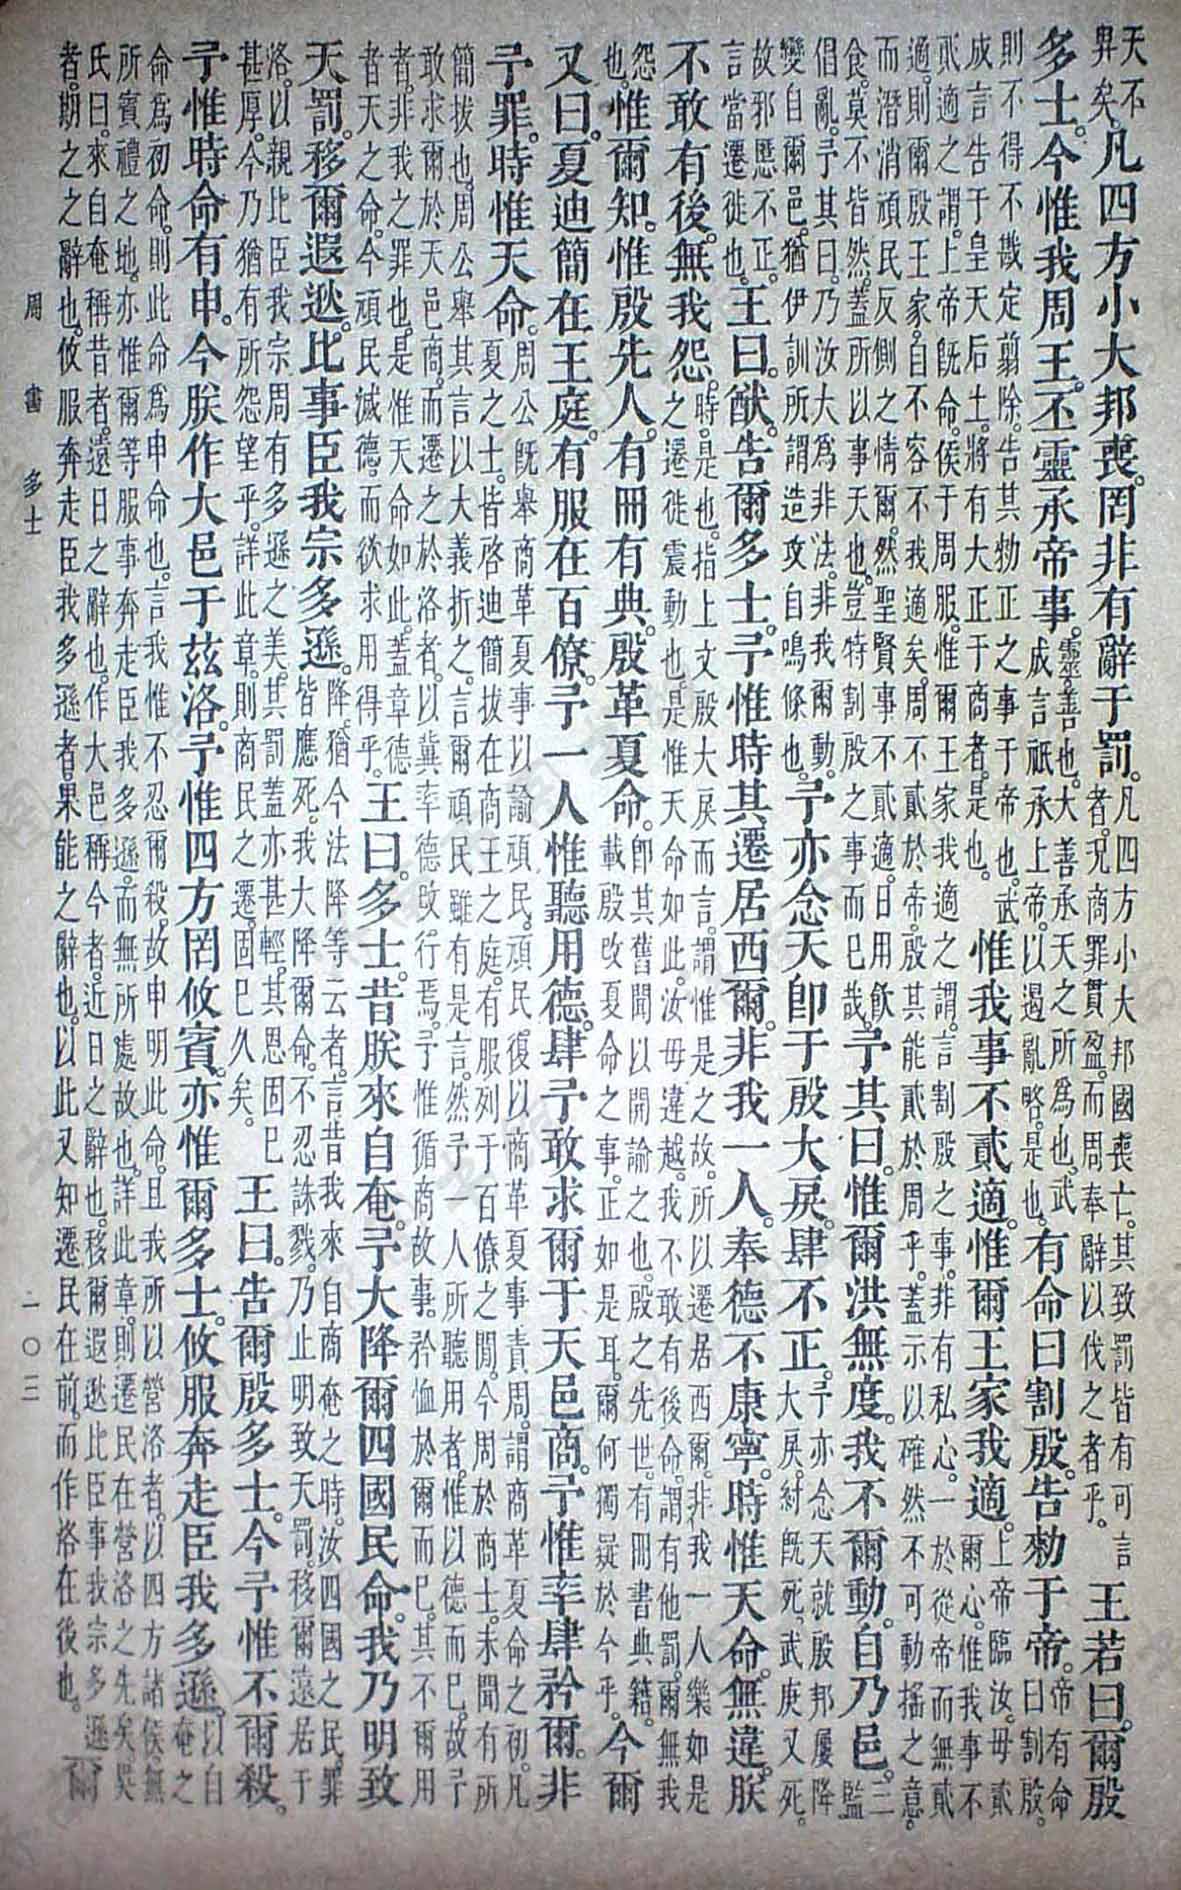 天不畀矣。凡四方小大邦喪。罔非有辭于罰。凡四方小大邦國喪亡。其致罰皆有可言者。況商罪貫盈。而周奉辭以伐之者乎。王若曰。爾殷
多士。今惟我周王。丕靈承帝事。靈。善也。大善承天之所爲也。武成言祇承上帝。以遏亂略。是也。有命曰割殷。告勑于帝。帝有命曰割殷。
則不得不戡定翦除。告其勑正之事于帝也。武成言告于皇天后土。將有大正于商者。是也。惟我事不貳適。惟爾王家我適。上帝臨汝。毋貳爾心。惟我事不
貳適之謂。上帝既命。侯于周服。惟爾王家我適之謂。言割殷之事。非有私心。一於從帝而無貳適。則爾殷王家。自不容不我適矣。周不貳於帝。殷其能貳於周乎。蓋示以確然不可動搖之意。
而潛消頑民反側之情爾。然聖賢事不貳適。日用飲食。莫不皆然。蓋所以事天也。豈特割殷之事而已哉。予其曰。惟爾洪無度。我不爾動。自乃邑。三監
倡亂。予其曰。乃汝大爲非法。非我爾動。變自爾邑。猶伊訓所謂造攻自鳴條也。予亦念天卽于殷大戾。肆不正。予亦念天就殷邦屢降大戾。紂既死。武庚又死。
故邪慝不正。言當遷徙也。王曰。猷。告爾多士。予惟時其遷居西爾。非我一人。奉德不康寧。時惟天命。無違。朕
不敢有後。無我怨。時。是也。指上文殷大戾而言。謂惟是之故。所以遷居西爾。非我一人樂如是之遷徙震動也。是惟天命如此。汝毋違越。我不敢有後命。謂有他罰。爾無我
怨也。惟爾知。惟殷先人。有冊有典。殷革夏命。卽其舊聞以開諭之也。殷之先世。有冊書典籍。載殷改夏命之事。正如是耳。爾何獨疑於今乎。今爾
又曰。夏迪簡在王庭。有服在百僚。予一人惟聽用德。肆予敢求爾于天邑商。予惟率肆矜爾。非
予罪。時惟天命。周公既舉商革夏事以諭頑民。頑民復以商革夏事責周。謂商革夏命之初。凡夏之士。皆啓迪簡拔在商王之庭。有服列于百僚之間。今周於商士。未聞有所
簡拔也。周公舉其言以大義折之。言爾頑民雖有是言。然予一人所聽用者。惟以德而已。故予敢求爾於天邑商。而遷之於洛者。以冀率德改行焉。予惟循商故事。矜恤於爾而已。其不爾用
者。非我之罪也。是惟天命如此。蓋章德者天之命。今頑民滅德。而欲求用得乎。王曰。多士。昔朕來自奄。予大降爾四國民命。我乃明致
天罰。移爾遐逖。比事臣。我宗多遜。降。猶今法降等云者。言昔我來自商奄之時。汝四國之民。罪皆應死。我大降爾命。不忍誅戮。乃止明致天罰。移爾遠居于
洛。以親比臣我宗周有多遜之美。其罰蓋亦甚輕。其恩固已甚厚。今乃猶有所怨望乎。詳此章。則商民之遷。固已久矣。王曰。告爾殷多士。今予惟不爾殺。
予惟時命有申。今朕作大邑于茲洛。予惟四方罔攸賓。亦惟爾多士。攸服奔走臣我多遜。以自奄之
命爲初命。則此命爲申命也。言我惟不忍爾殺。故申明此命。且我所以營洛者。以四方諸侯無所賓禮之地。亦惟爾等服事奔走臣我多遜。而無所處故也。詳此章。則遷民在營洛之先矣。吳
氏曰。來自奄稱昔者。遠日之辭也。作大邑稱今者。近日之辭也。移爾遐逖。比臣事我宗多遜者。期之之辭也。攸服奔走臣我多遜者。果能之辭也。以此又知遷民在前。而作洛在後也。爾
周書 多士 一〇三